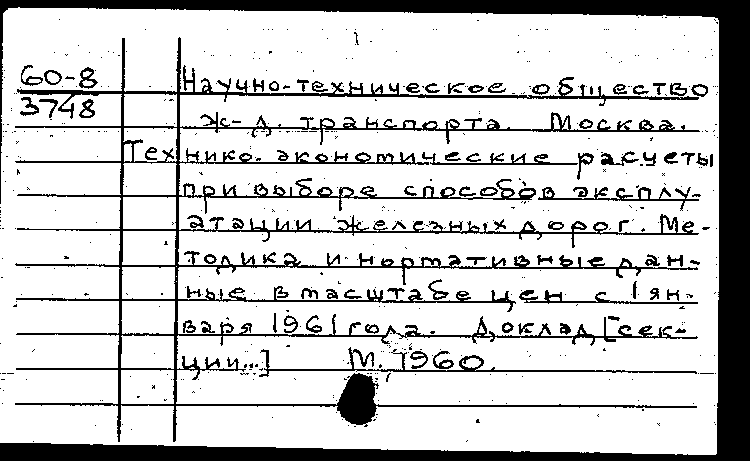 60-8
3748
Научно-техническое общество
ж-д. транспорта. Москва.
Технико-экономические расчеты
при выборе способов эксплу-
атации железных дорог. Ме-
тодика и нормативные дан-
ные в масштабе цен с 1 ян-
варя 1961 года. Доклад [сек-
ции...] М., 1960.